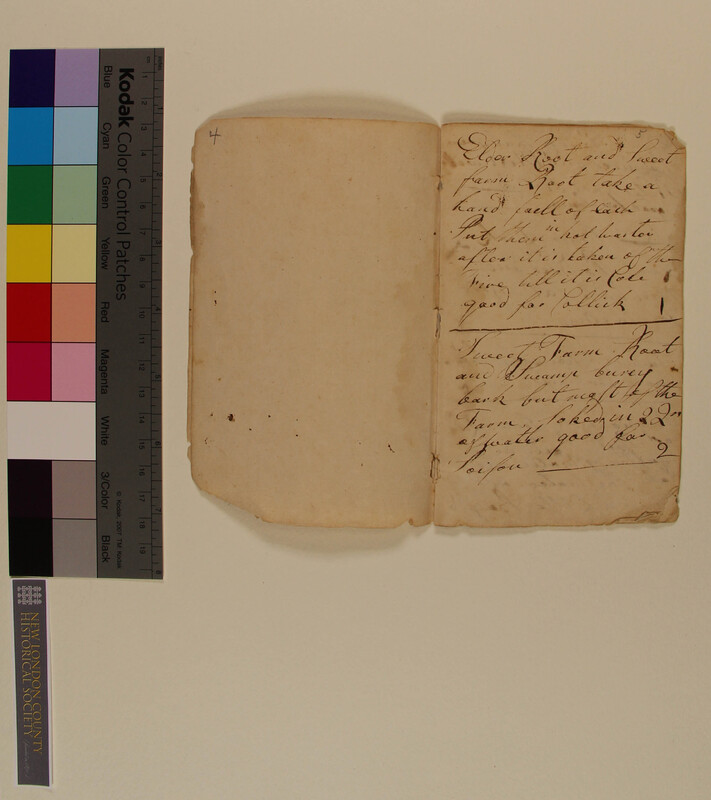 Kodak Color Control Patches
Blue
Cyan
Green
Yellow
Red
Magenta
White
3/Color
Black
© Kodak, 2007 TM: Kodak
NEW LONDON COUNTY
HISTORICAL SOCIETY
4
5
Elder Root and Sweet
farm Root take a
hand full of each
Put them in hot water
after it is taken of the
Fire till it is Cole
good for Collick 1
Sweet Farm Root
and Swamp burey
bark but most of the
Farm Soked in
of water good for
Poison 2